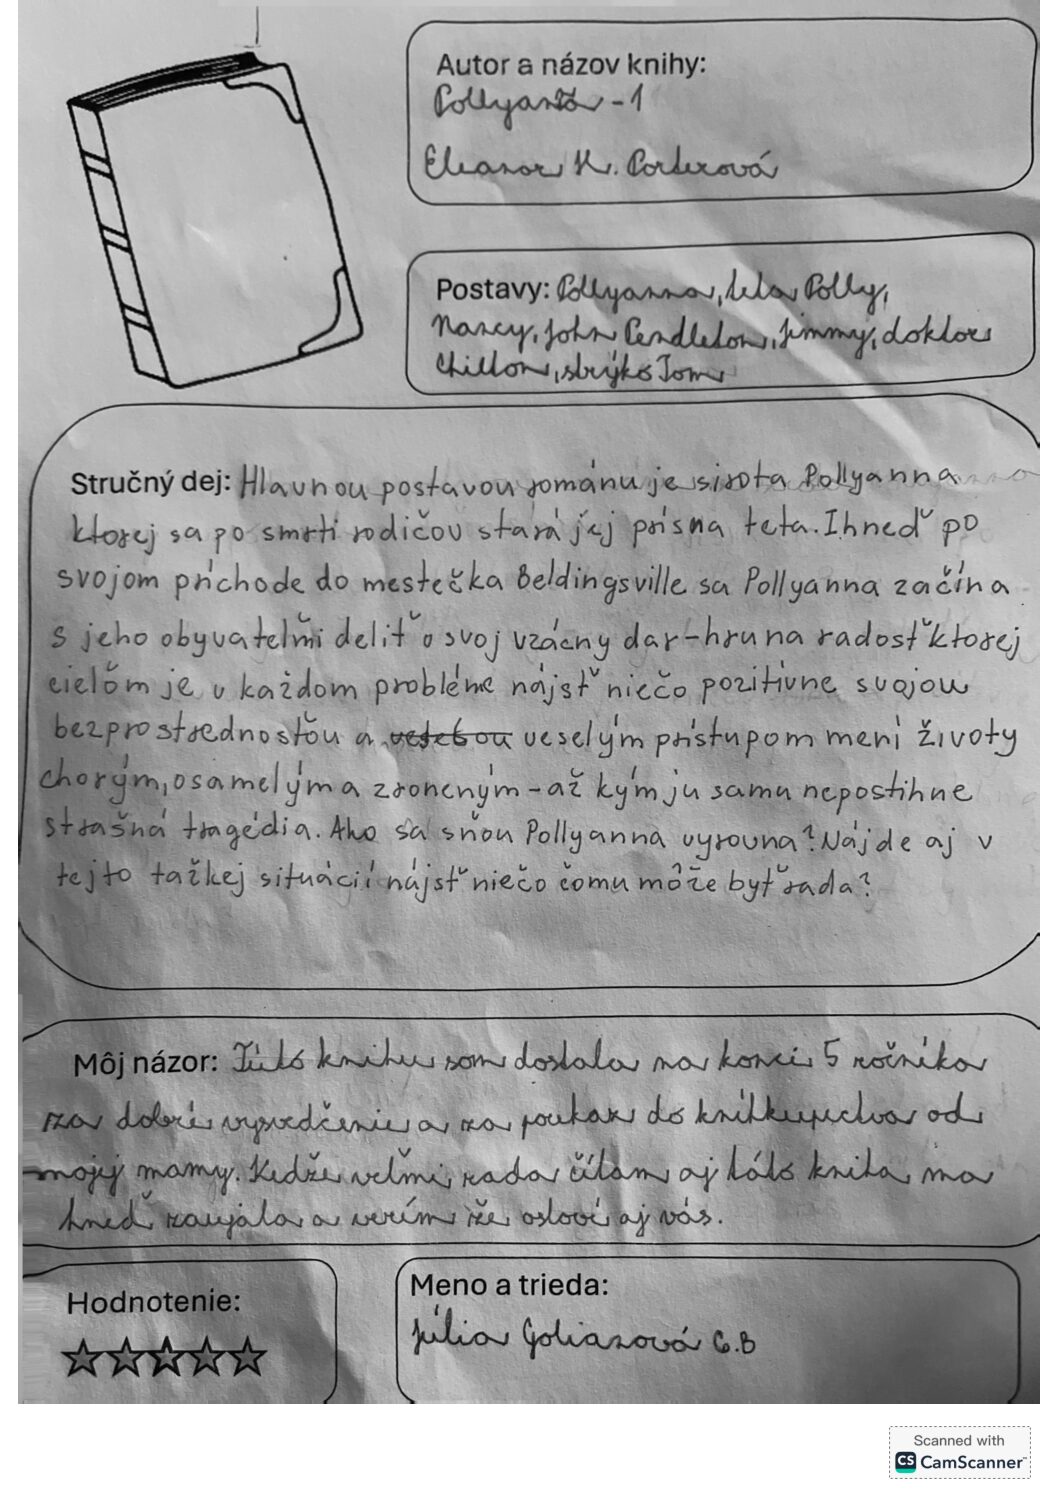 Autor a názov knihy:
Pollyanna - 1
Eleanor H. Porterová
Postavy: Pollyanna, teta Polly,
Nancy, John Pendleton, Jimmy, doktor
Chilton, strýko Tom
Stručný dej: Hlavnou postavou románu je sirota Pollyanna
ktorej sa po smrti rodičou stará jej prísna teta. Ihneď po
svojom príchode do mestečka Beldingsville sa Pollyanna začína
s jeho obyvateľmi deliť o svoj vzácny dar-hru na radosť ktorej
cieľom je v každom probléme nájsť niečo pozitívne svojou
bezprostrednosťou a veselým prístupom mení životy
chorým, osamelým a zroneným - až kým ju samu nepostihne
strašná tragédia. Ako sa sňou Pollyanna vyrovna? Nájde aj v
tejto tažkej situácií nájsť niečo čomu môže byť rada?
Môj názor: Túto knihu som dostala na konci 5 ročníka
za dobré vysvedčenie a za poukaz do kníhkupectva od
mojej mamy. Kedže veľmi rada čítam aj táto kniha ma
hneď zaujala a verím že osloví aj vás.
Hodnotenie:
Meno a trieda:
Júlia Goliaszová 6.B
Scanned with
CS CamScanner